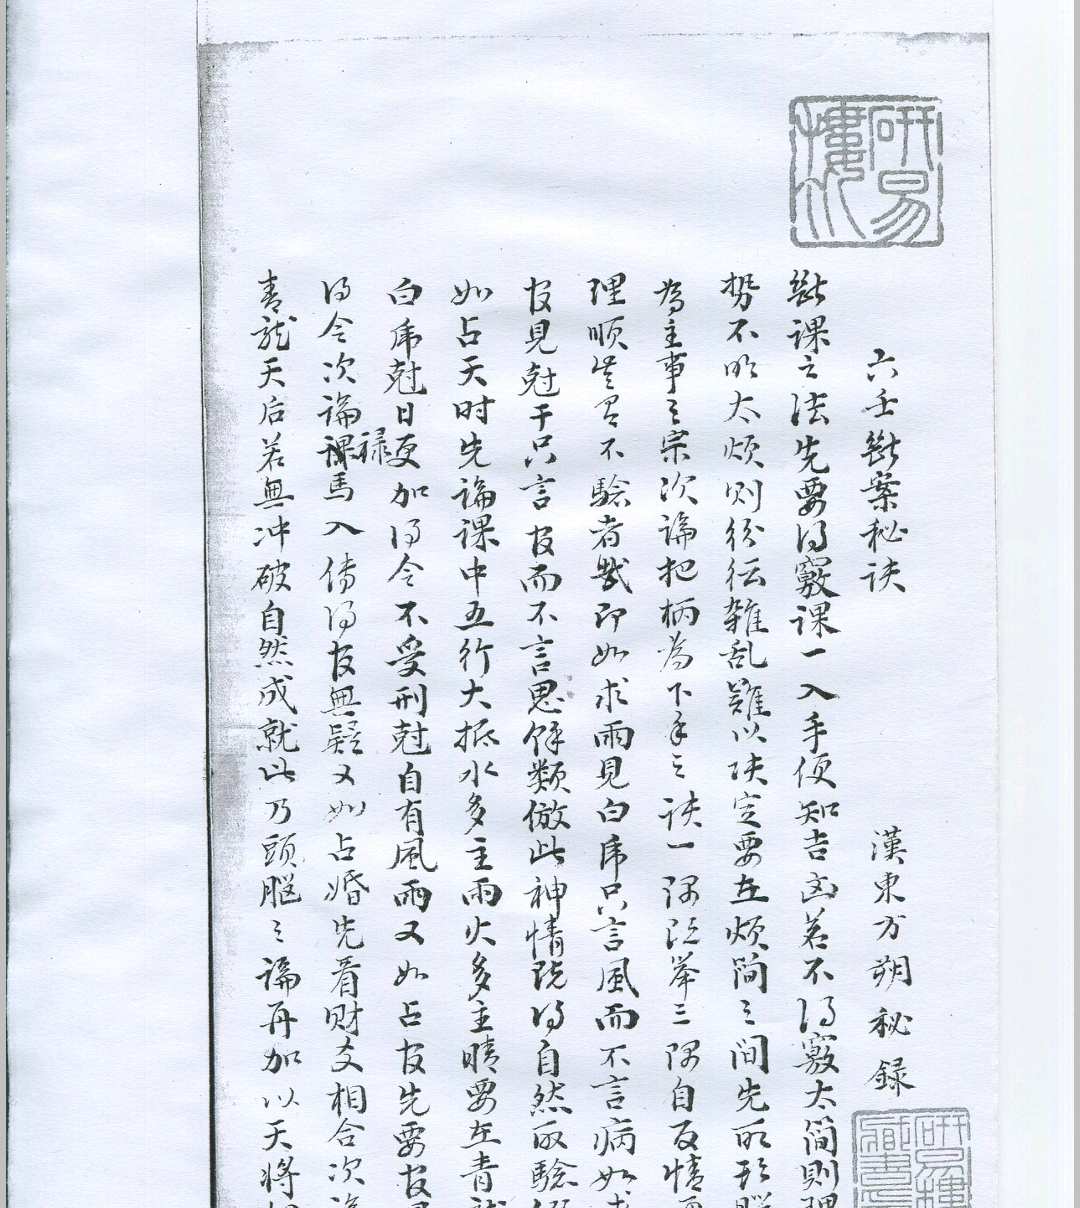 研易樓
六壬斷案秘诀
漢東方朔秘錄
研易樓藏書
斷课之法先要得竅课一入手便知吉凶若不得竅太简则理
势不明太烦则纷纭雜乱難以决定要在烦简之间先明形
為主事之宗次論把柄為下手之诀一隅既举三隅自反情
理顺岂有不驗者哉即如求雨見白虎只言風而不言病如
官見尅干只言官而不言鬼餘類倣此神情既得自然取驗
如占天时先論课中五行大抵水多主雨火多主晴要在青龍
白虎尅日更加得令不受刑尅自有風雨又如占官先要官
得令次論禄馬入傳得官無疑又如占婚先看财支相合次論
青龍天后若無冲破自然成就此乃頭腦之論再加以天將